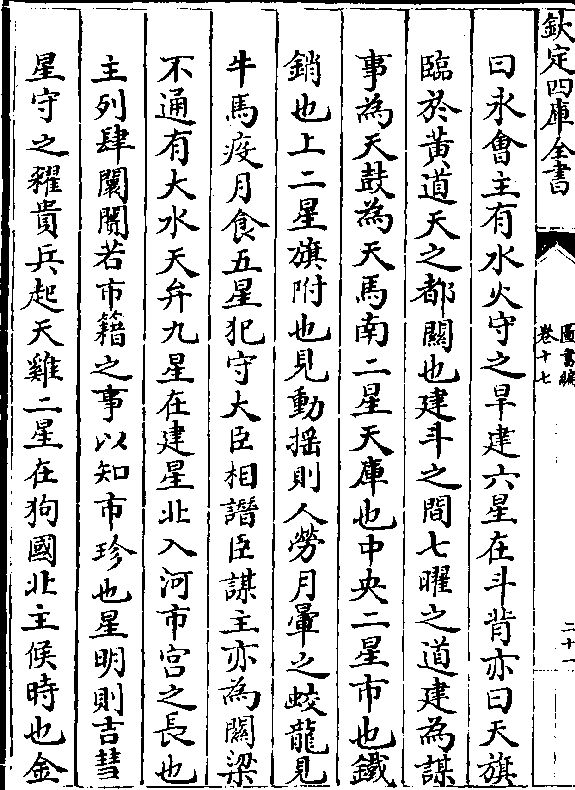 欽定四庫全書
圖書編
卷十七
二十一
曰氷㑹主有水火守之旱建六星在斗背亦曰天旗
臨於黄道天之都闗也建斗之間七曜之道建為謀
事為天鼓為天馬南二星天庫也中央二星市也鐵
鎖也上二星旗附也見動揺則人勞月暈之蛟龍見
牛馬疫月食五星犯守大臣相譖臣謀主亦為闗梁
不通有大水天弁九星在建星北入河市宫之長也
主列肆闤闠若市籍之事以知市珍也星明則吉彗
星守之糴貴兵起天雞二星在狗國北主候時也金